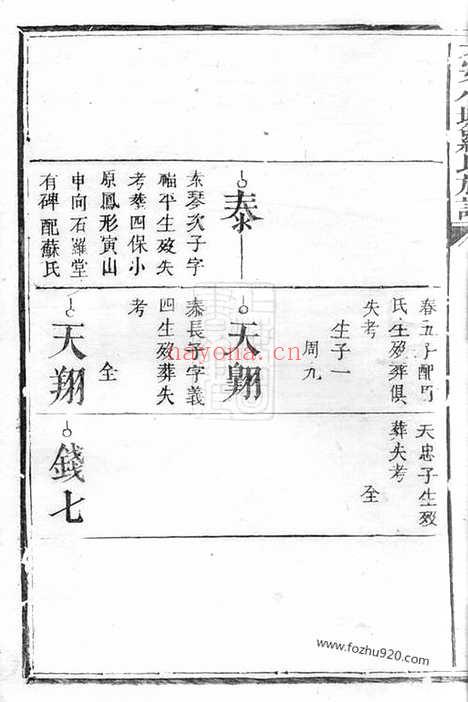 羅氏族譜
泰
琴次子字
福平生歿失
考葬四保小
原鳳形寅山
申向石羅堂
有碑配蘇氏
春五子配
氏生歿葬俱
失考
生子一
周九
天翺
泰長子字義
四生歿葬失
考
仝
天翔
天忠子生歿
葬失考
仝
錢七
nayona.cn
www.fozhu920.com